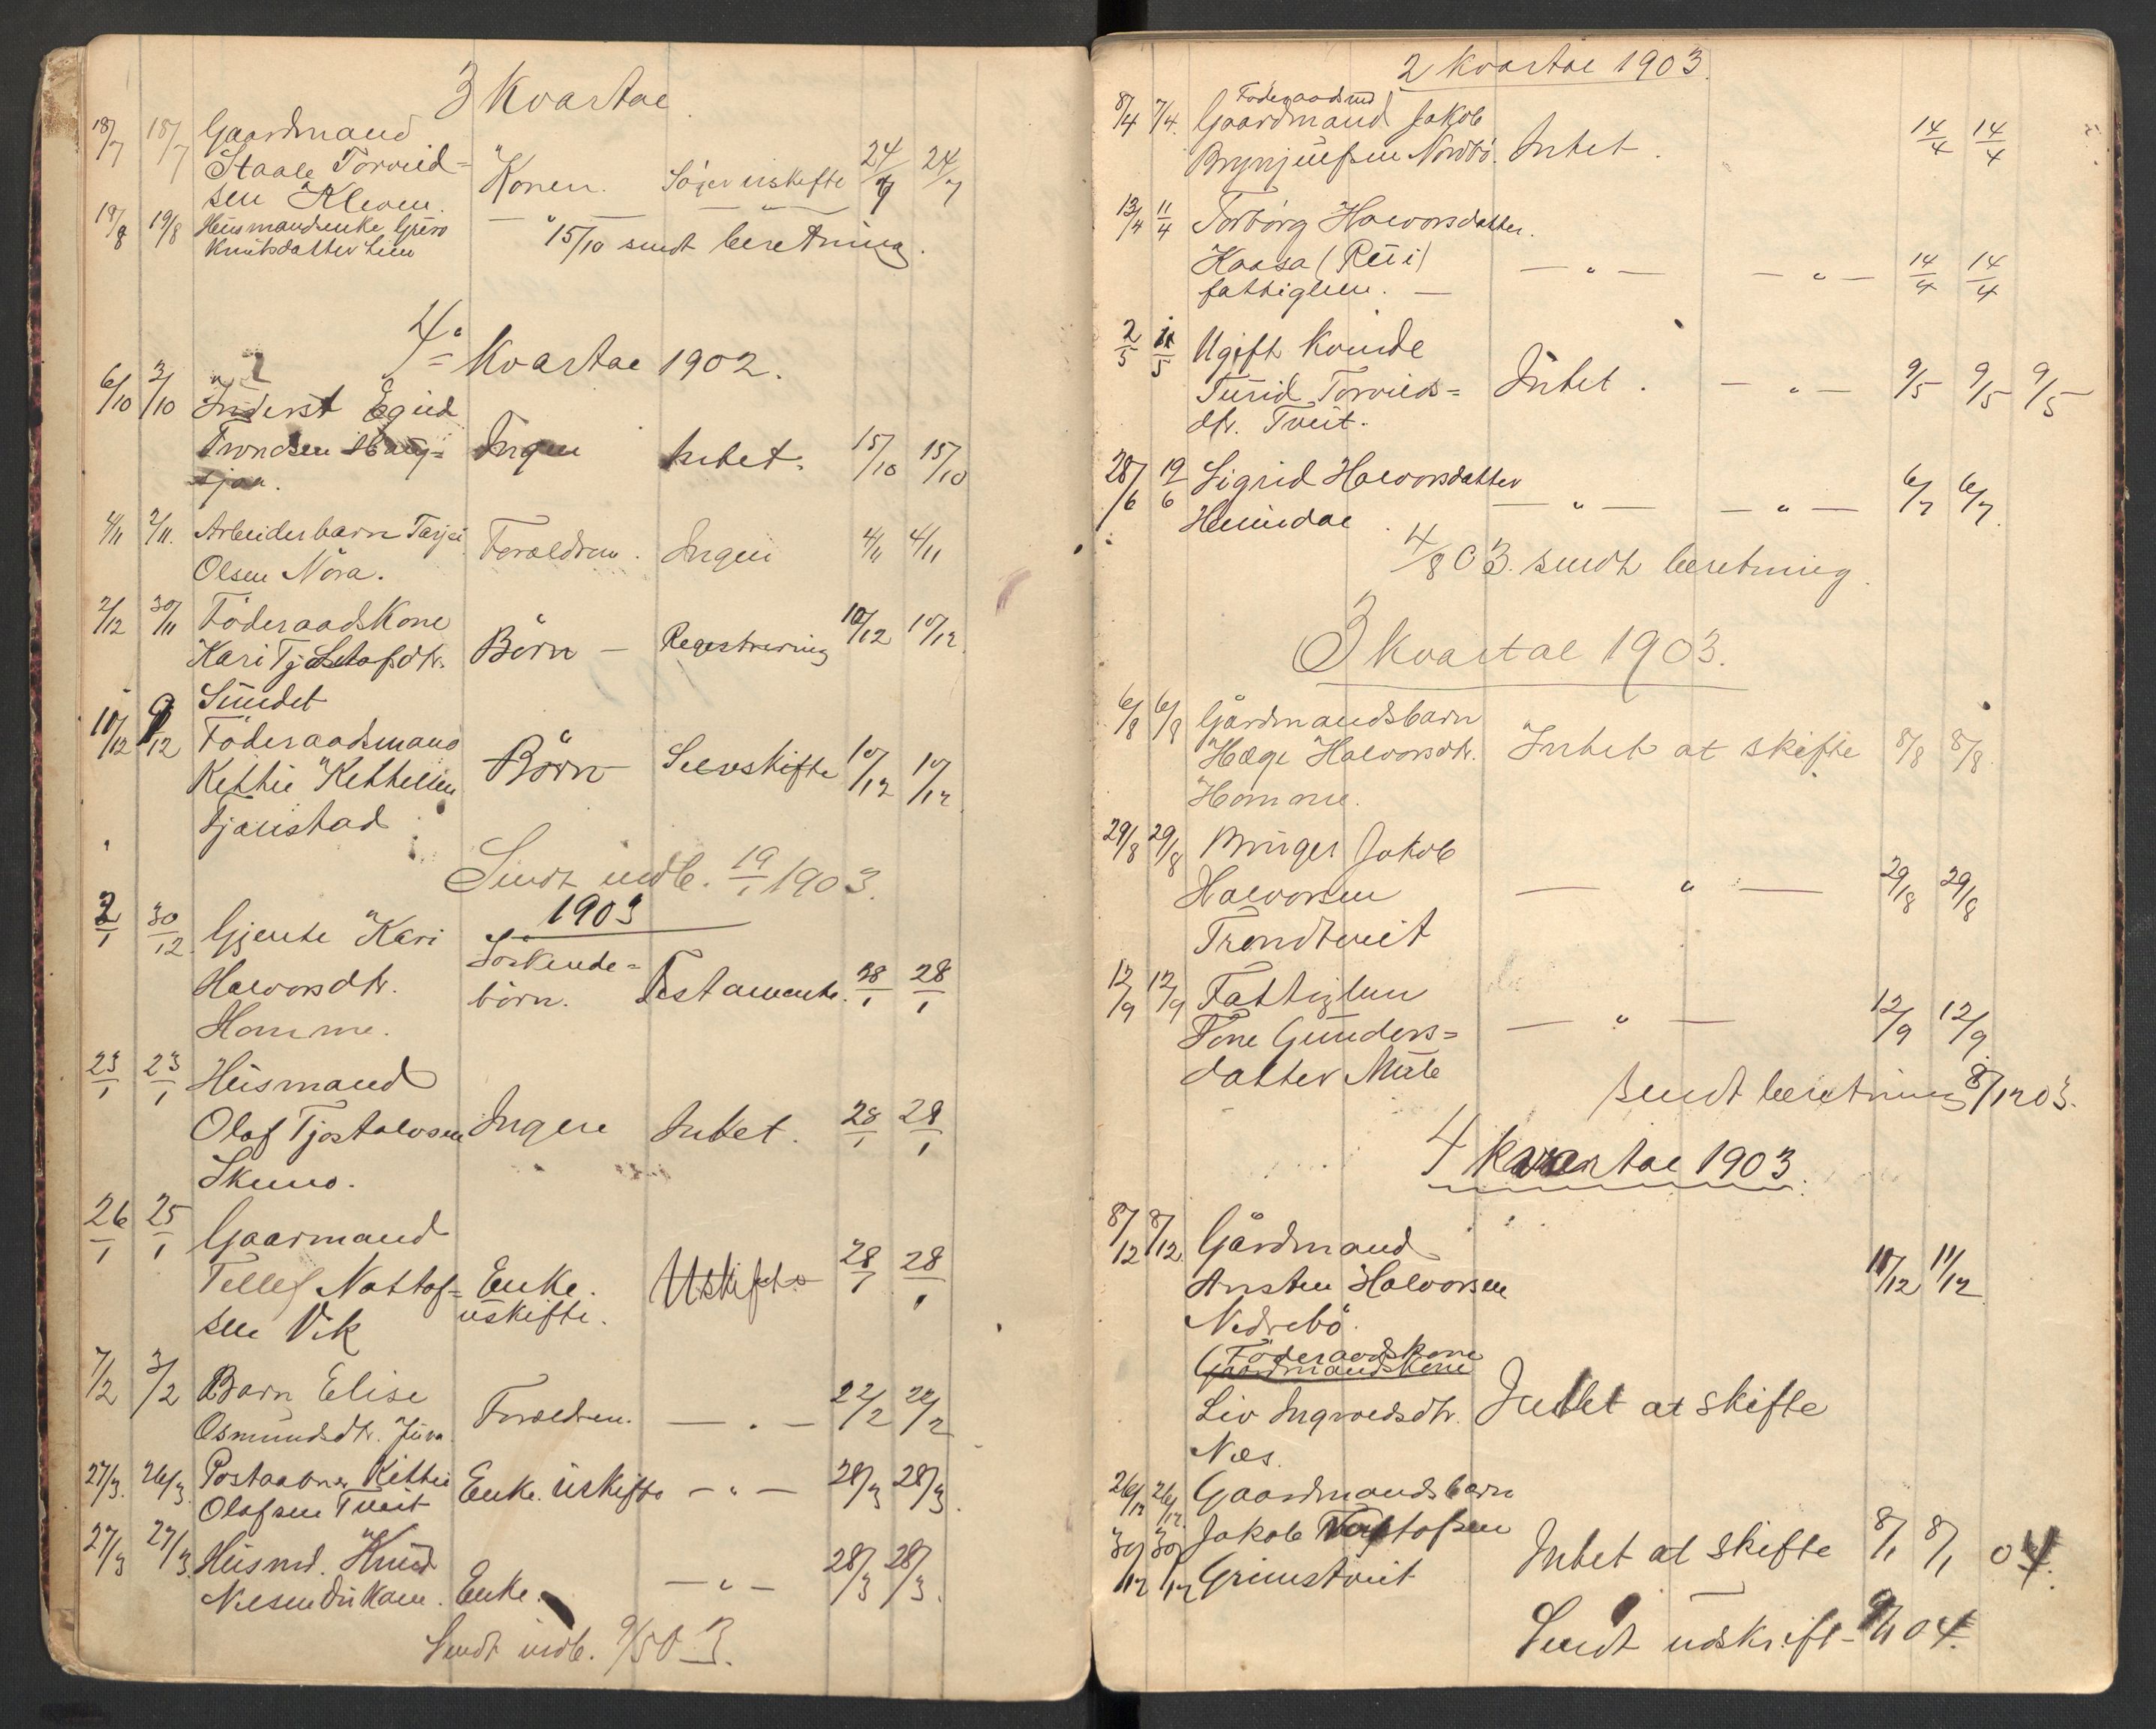 3 Kvartal
18/7 18/7 Gaardmand
Staale Torvild=
sen Kleven. Konen. Söger uskifte 24/7 24/7
19/8 19/8 Husmandsenke Guro
Knutsdatter Lien — " — 15/10 sendt beretning.
4de Kvartal 1902.
6/10 3/10 Inderst Egild
Trondsen Haug= Ingen Intet. 15/10 15/10
sjaa.
4/11 2/11. Arbeiderbarn Tarjei
Olsen Nöra. Foræeldren. Ingen 4/11 4/11
2/12 30/11 Föderaadskone
Kari Tj Letofsdtr. Börn — Registrering 10/12 10/12.
Sundet
10/12 9/12 Föderaadsmand
Kettil Kettilsen Börn Selvskifte 10/12 10/12
Tjönstad
Sendt indb. 19/1 1903.
1903
2/1 30/12. Gjente Kari
Halvorsdtr. Söskende=
börn. Testamente. 28/1 28/1
Homme.
23/1 23/1 Husmand
Olaf Tjostolvsen Ingen Intet. 28/1 28/1
Skuno.
26/1 25/1 Gaarmand
Tellef Nottof= Enke. Uskifte 28/1 28/1
sen Vik uskifte.
7/2 3/2 Barn Elise
Osmundsdtr. Juva. Forældren. — " — 22/2 22/2
27/3. 26/3. Postaabner Kittil
Olafsen Tveit Enke. uskifte — " — 28/3 28/3.
27/3 27/3. Husmd. Knud
Nilsen Dukam. Enke. — " — 28/3 28/3.
Sendt indb. 9/5 03.
2 kvartal 1903.
Föderaadsmd
8/4 7/4. Gaardmand Jakob
Brynjulfsen Nordbö. Intet. 14/4 14/4
13/4 11/4 Torborg Halvorsdatter.
Kaasa (Rui) — " — — " — 14/4 14/4
fattiglem. —
2/5 1/5 Ugift kvinde
Turid Torvilds= Intet. — " — 9/5 9/5 9/5
dtr. Tveit.
28/6 19/6 Sigrid Halvorsdatter
Heimdal. — " — — " — 6/7 6/7.
4/8 03. sendt beretning.
3 kvartal 1903.
6/8 6/8 Gårdmandsbarn
Hæge Halvorsdtr. Intet at skifte 8/8 8/8.
Homme.
29/8 29/8 Bruger Jakob
Halvorsen — " — 29/8 29/8
Trondtveit
12/9 12/9 Fattiglem
Tone Gunders= — " — 12/9 12/9
datter Mule
sendt beretning 8/12 03.
4 kvartal 1903.
8/12 8/12. Gårdmand
Ansten Halvorsen 11/12 11/12
Nedrebö.
Föderaadskone
Gaardmandskone
Liv Ingvoldsdtr. Intet at skifte
Næs.
26/12 26/12. Gaardmandsbarn
30/12 30/12 Jakob
Grimstveit Intet at skifte 8/1 8/1 04.
Sendt udskrift 9/1 04.